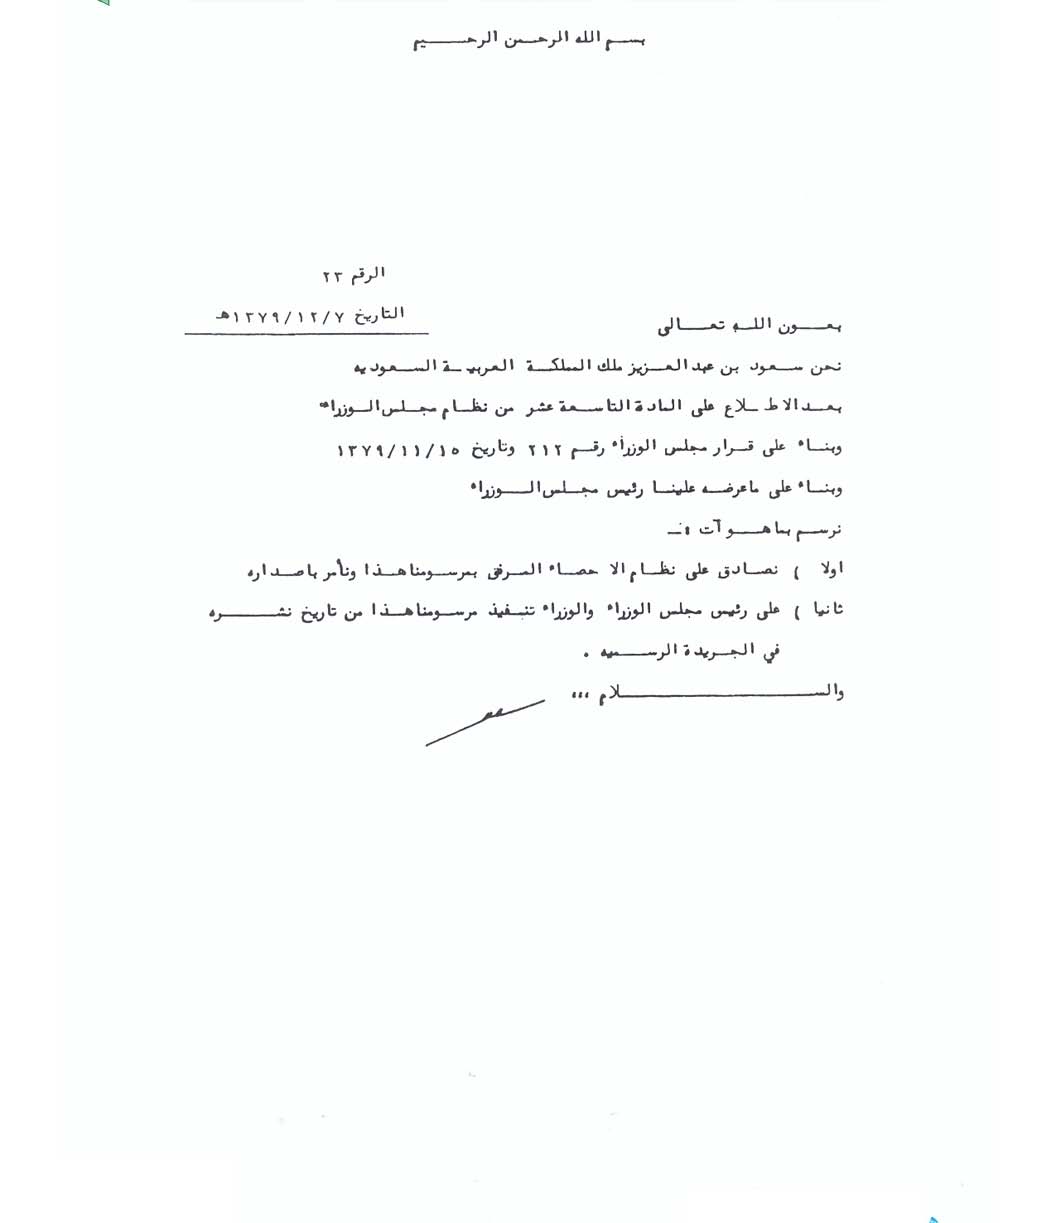 بسم الله الرحمن الرحيم
الرقم ٢٣
التاريخ ١٣٧٩/١٢/٧هـ
بعون الله تعالى
نحن سعود بن عبد العزيز ملك المملكة العربية السعوديه
بعد الاطلاع على المادة التاسعة عشر من نظام مجلس الوزراء
وبناء على قرار مجلس الوزراء رقم ٢١٢ وتاريخ ١٣٧٩/١١/١٥
وبناء على ماعرضه علينا رئيس مجلس الوزراء
نرسم بما هو آت :ـ
اولا ) نصادق على نظام الاحصاء المرفق بمرسومنا هذا ونأمر باصداره
ثانيا ) على رئيس مجلس الوزراء والوزراء تنفيذ مرسومنا هذا من تاريخ نشره
في الجريدة الرسميه .
والسلام ،،،